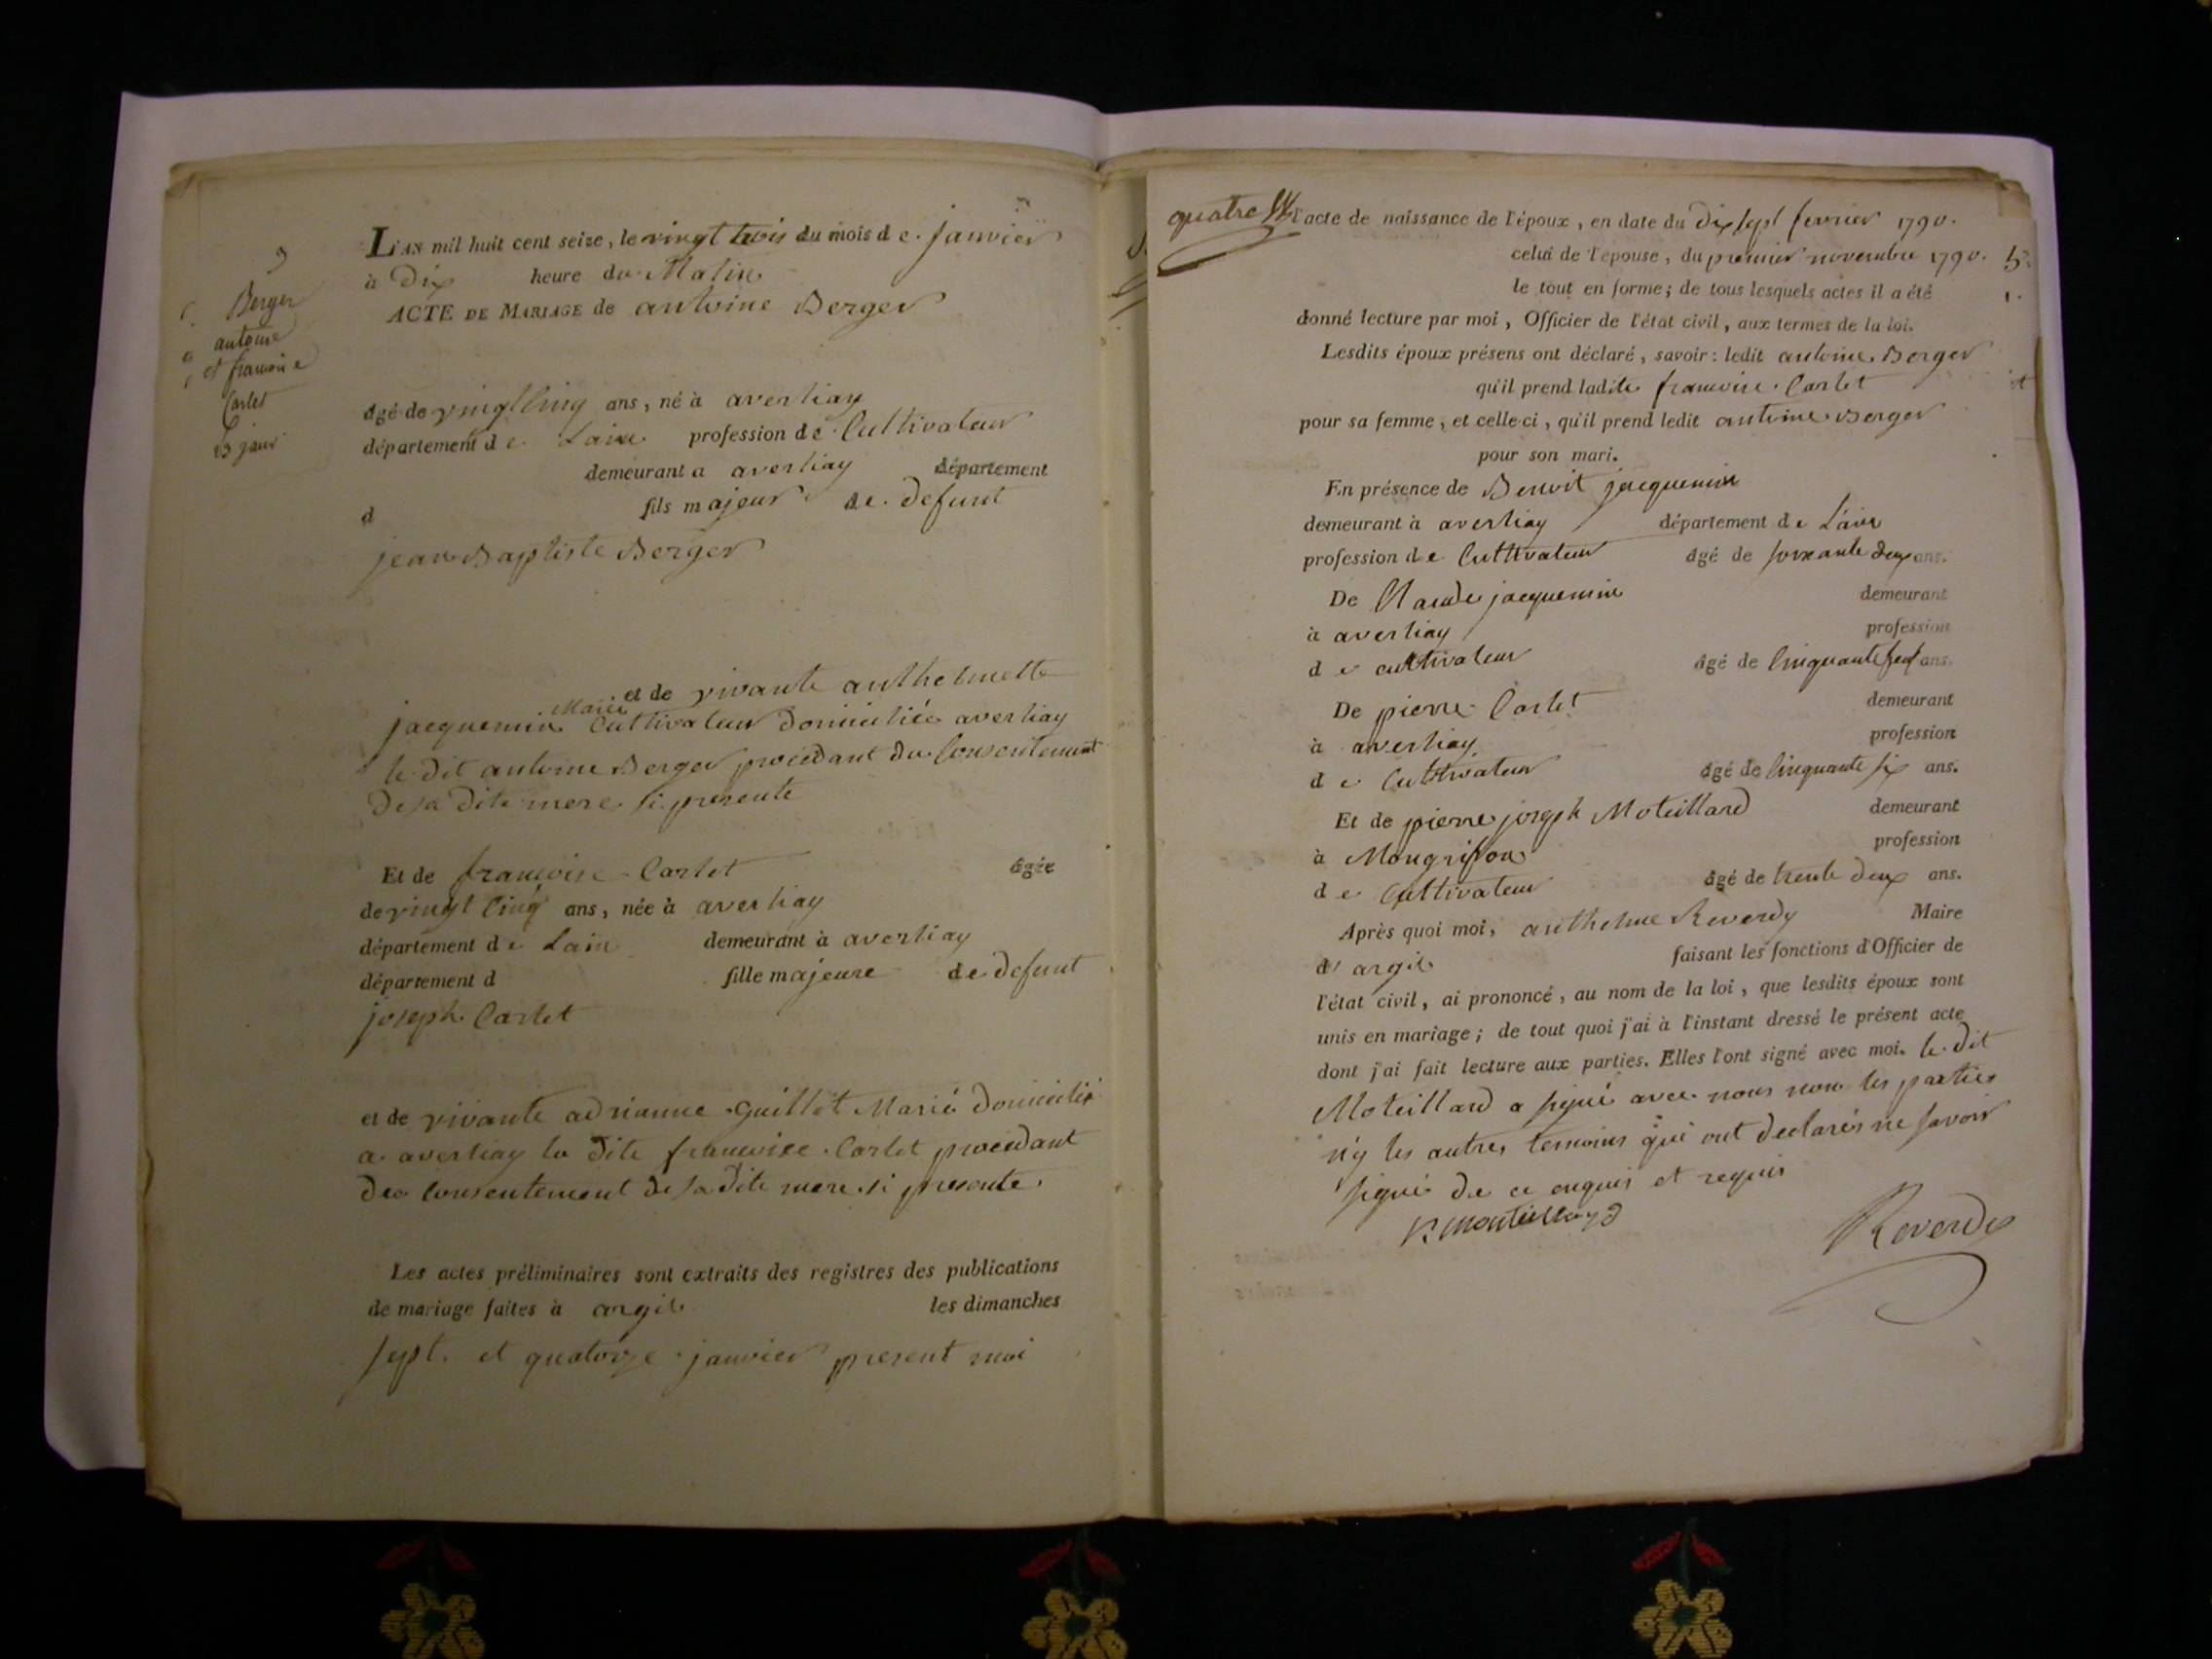 Berger
antoine
et francoise
Carlet
23 janv
L'AN mil huit cent seize, le vingt trois du mois de janvier
à Dix heure du Matin
ACTE DE MARIAGE de antoine Berger
âgé de vingt cinq ans, né à averliay
département de Lain profession de Cultivateur
demeurant a averliay département
d fils majeur de defunt
jean Baptiste Berger
et de vivante anthelmette
jacquemin Marié Cultivateur domiciliée averliay
le dit antoine Berger procédant du Consentement
de sa dite mere si presente
Et de francoise Carlet âgée
de vingt cinq ans, née à averliay
département de Lain demeurant à averliay
département d fille majeure de defunt
joseph Carlet
et de vivante adrianne Guillot Marié domicilié
a averliay la dite francoise Carlet procédant
du Consentement de sa dite mere si presente
Les actes préliminaires sont extraits des registres des publications
de mariage faites à argis les dimanches
sept et quatorze janvier present moi
quatre
l'acte de naissance de l'époux, en date du dix sept fevrier 1790.
celui de l'épouse, du premier novembre 1790.
le tout en forme; de tous lesquels actes il a été
donné lecture par moi, Officier de l'état civil, aux termes de la loi.
Lesdits époux présens ont déclaré, savoir: ledit antoine Berger
qu'il prend ladite francoise Carlet
pour sa femme, et celle-ci, qu'il prend ledit antoine Berger
pour son mari.
En présence de Benoit jacquemin
demeurant à averliay département de L'ain
profession de Cultivateur âgé de soixante deux ans.
De Claude jacquemin demeurant
à averliay profession
de cultivateur âgé de Cinquante sept ans.
De pierre Carlet demeurant
à averliay profession
de Cultivateur âgé de Cinquante six ans.
Et de pierre joseph Moteillard demeurant
à Mongriffon profession
de Cultivateur âgé de trente deux ans.
Après quoi moi, anthelme Reverdy Maire
d'argis faisant les fonctions d'Officier de
l'état civil, ai prononcé, au nom de la loi, que lesdits époux sont
unis en mariage; de tout quoi j'ai à l'instant dressé le présent acte
dont j'ai fait lecture aux parties. Elles l'ont signé avec moi. le dit
Moteillard a signé avec nous non les parties
n'y les autres temoins qui ont declarés ne savoir
signé de ce enquis et requis
Reverdy